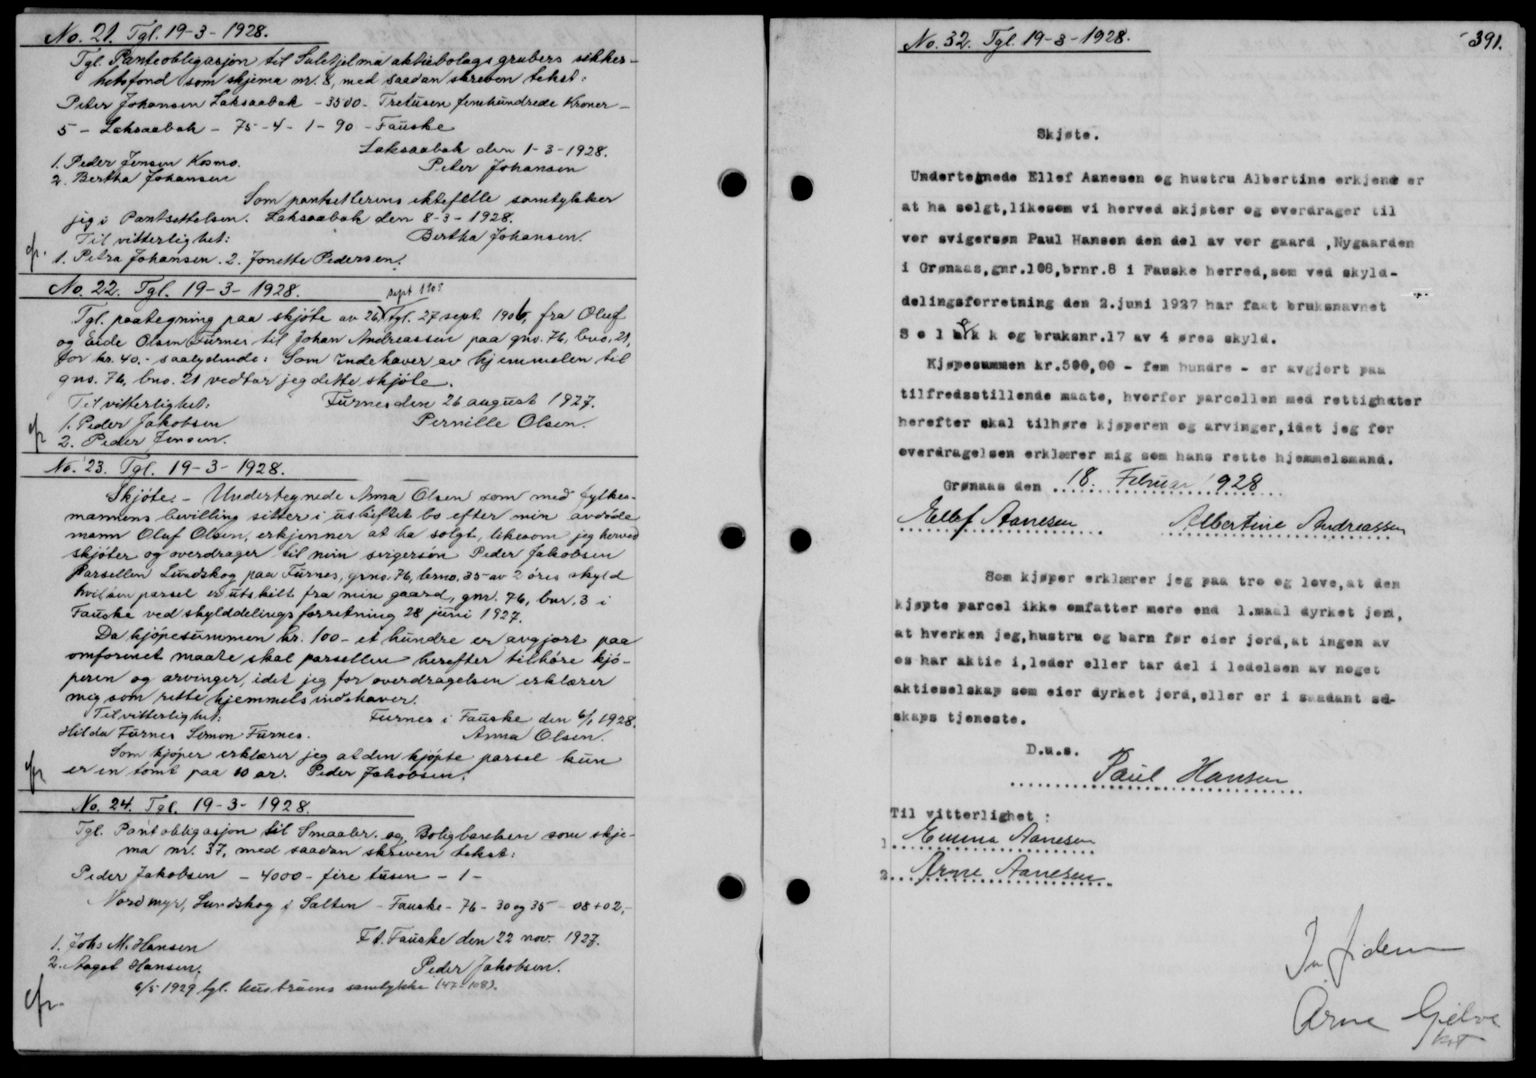 No. 21. Tgl. 19-3-1928.
Tgl. Panteobligasjon til Sulitjelma aktiebolags grubers sikker-
hetsfond som skjema nr. 8, med saadan skreven tekst:
Peter Johansen Laksaabak - 3500 - Tretusen femhundrede Kroner -
5 - Laksaabak - 75 - 4 - 1 - 90 - Fauske
Laksaabak den 1-3-1928.
1. Peder Jensen Kosmo.
Peter Johansen
2. Bertha Johansen
Som pantsetterens ektefelle samtykker
jeg i Pantsettelsen. Laksaabak den 8-3-1928.
Til vitterlighet:
Bertha Johansen.
1. Petra Johansen. 2. Jonette Pedersen.
No. 22. Tgl. 19-3-1928.
Tgl. paategning paa skjøte av 26 sept. 1908 Tgl. 27 sept. 190, fra Oluf
og Olsen Furnes til Johan Andreassen paa gno. 76, bno. 21,
for kr. 40.- saalydende: Som indehaver av hjemmelen til
gno. 76, bno. 21 vedtar jeg dette skjøte.
Til vitterlighet:
Furnes den 26 august 1927.
1. Peder Jakobsen
Pernille Olsen.
2. Peder Jensen.
No. 23. Tgl. 19-3-1928.
Skjøte: - Undertegnede Anna Olsen som med fylkes-
mannens bevilling sitter i uskiftet bo efter min avdøde
mann Oluf Olsen, erkjenner at ha solgt, likesom jeg herved
skjøter og overdrager til min svigersøn Peder Jakobsen
Parsellen Lundskog paa Furnes, grno. 76, brno. 35 av 2 øres skyld
hvilken parsel er utskilt fra min gaard, gnr. 76, bnr. 3 i
Fauske ved skylddelings forretning 28 juni 1927.
Da kjøpesummen kr. 100 - et hundre er avgjort paa
omforenet maate skal parsellen herefter tilhøre kjø-
peren og arvinger, idet jeg for overdragelsen erklærer
mig som rette hjemmels indehaver.
Til vitterlighet:
Furnes i Fauske den 6/1 1928.
Hilda Furnes Simon Furnes.
Anna Olsen.
Som kjøper erklærer jeg at den kjøpte parsel kun
er en tomt paa 10 ar. Peder Jakobsen.
No. 24. Tgl. 19-3-1928.
Tgl. Pantobligasjon til Smaabr. og Boligbanken som skje-
ma nr. 37, med saadan skreven tekst:
Peder Jakobsen - 4000 - fire tusen - 1 -
Nordmyr, Lundskog i Salten - Fauske - 76 - 30 og 35 - 08 + 02,-
1. Johs M. Hansen
Ft. Fauske den 22 nov. 1927.
2. Aagot Hansen.
Peder Jakobsen.
6/5-1929 tgl. hustruens samtykke (47-108).
No. 32. Tgl. 19-3-1928.
391.
Skjøte.
Undertegnede Ellef Aanesen og hustru Albertine erkjender
at ha solgt, likesom vi herved skjøter og overdrager til
vor svigersøn Paul Hansen den del av vor gaard ,Nygaarden
i Grønaas, gnr.108, brnr.8 i Fauske herred, som ved skyld-
delingsforretning den 2.juni 1927 har faat bruksnavnet
og bruksnr.17 av 4 øres skyld.
Kjøpesummen kr.500,00 - fem hundre - er avgjort paa
tilfredsstillende maate, hvorfor parcellen med rettigheter
herefter skal tilhøre kjøperen og arvinger, idet jeg for
overdragelsen erklærer mig som hans rette hjemmelsmand.
Grønaas den 18. Februar 1928
Ellef Aanesen Albertine Andreassen
Som kjøper erklærer jeg paa tro og love, at den
kjøpte parcel ikke omfatter mere end 1.maal dyrket jord,
at hverken jeg, hustru og barn før eier jord, at ingen av
os har aktie i, leder eller tar del i ledelsen av noget
aktieselskap som eier dyrket jord, eller er i saadant sel-
skaps tjeneste.
D.u.s.
Paul Hansen
Til vitterlighet :
1. Emma Aanesen
2. Arne Aanesen
In fidem
Arne